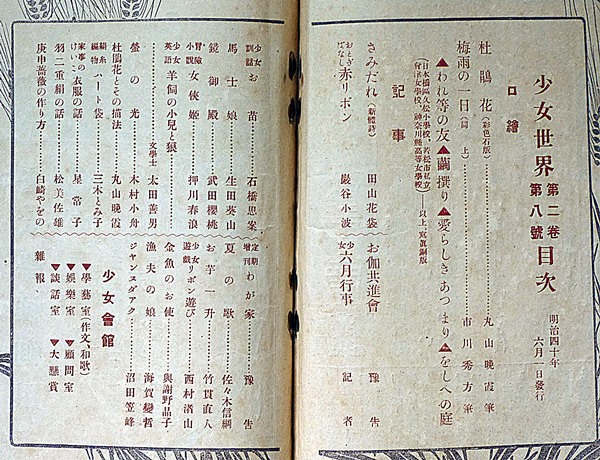 少女世界 第二巻第八號 目次 明治四十年六月一日發行
口繪
杜鵑花(彩色石版)……丸山晚霞筆
梅雨の一日(同上)……市川秀方筆
▲われ等の友▲繭撰り▲愛らしきあつまり▲をしへの庭
(日本橋區久松小學校、若松市私立會津女學校、神奈川縣高等女學校)―以上、寫眞銅版
記事
さみだれ(新體詩) 田山花袋
おとぎばなし 赤リボン 巖谷小波
お伽共進會 豫告
少女 六月行事 記者
少女訓話 お苗……石橋思案
馬士娘……生田葵山
鏡御殿……武田櫻桃
冒險小說 女俠姬……押川春浪
少女英語 羊飼の小兒と狼
……文學士 太田善男
螢の光……木村小舟
杜鵑花とその描法……丸山晚霞
絹糸編物 ハート袋……三木とみ子
家事のけいこ 衣服の話……星常子
羽二重絹の話……松美佐雄
庚申薔薇の作り方……白崎やをの
定期增刊 わが家 豫告
夏の歌……佐々木信綱
お芋一升……竹貫直人
少女遊戲 リボン遊び……西村渚山
金魚のお使……與謝野晶子
漁夫の娘……海賀變哲
ジャンヌダアク……沼田笠峰
少女會館
▼學藝室(作文、和歌)
▼娛樂室▼顧問室
▼談話室▼大懸賞
雜報